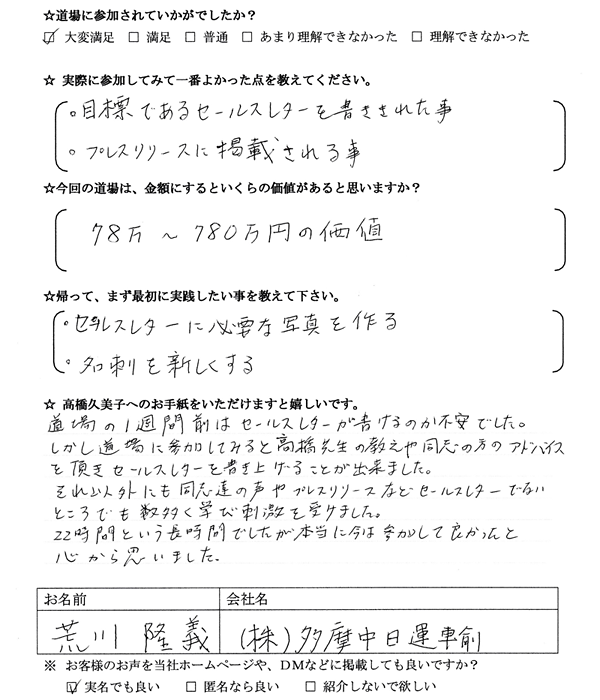 ☆道場に参加されていかがでしたか？
☑ 大変満足 □ 満足 □ 普通 □ あまり理解できなかった □ 理解できなかった
☆ 実際に参加してみて一番よかった点を教えてください。
・目標であるセールスレターを書きされた事
・プレスリリースに掲載される事
☆今回の道場は、金額にするといくらの価値があると思いますか？
78万～780万円の価値
☆帰って、まず最初に実践したい事を教えて下さい。
・セールスレターに必要な写真を作る
・名刺を新しくする
☆ 高橋久美子へのお手紙をいただけますと嬉しいです。
道場の1週間前はセールスレターが書けるのか不安でした。
しかし道場に参加してみると高橋先生の教えや同志の方のアドバイス
を頂きセールスレターを書き上げることが出来ました。
それ以外にも同志達の声やプレスリリースなどセールスレターでない
ところでも数多く学び刺激を受けました。
22時間という長時間でしたが本当に今は参加して良かったと
心から思いました。
お名前 会社名
荒川 隆義 (株)多摩中日運輸
※ お客様のお声を当社ホームページや、DMなどに掲載しても良いですか？
☑ 実名でも良い □ 匿名なら良い □ 紹介しないで欲しい